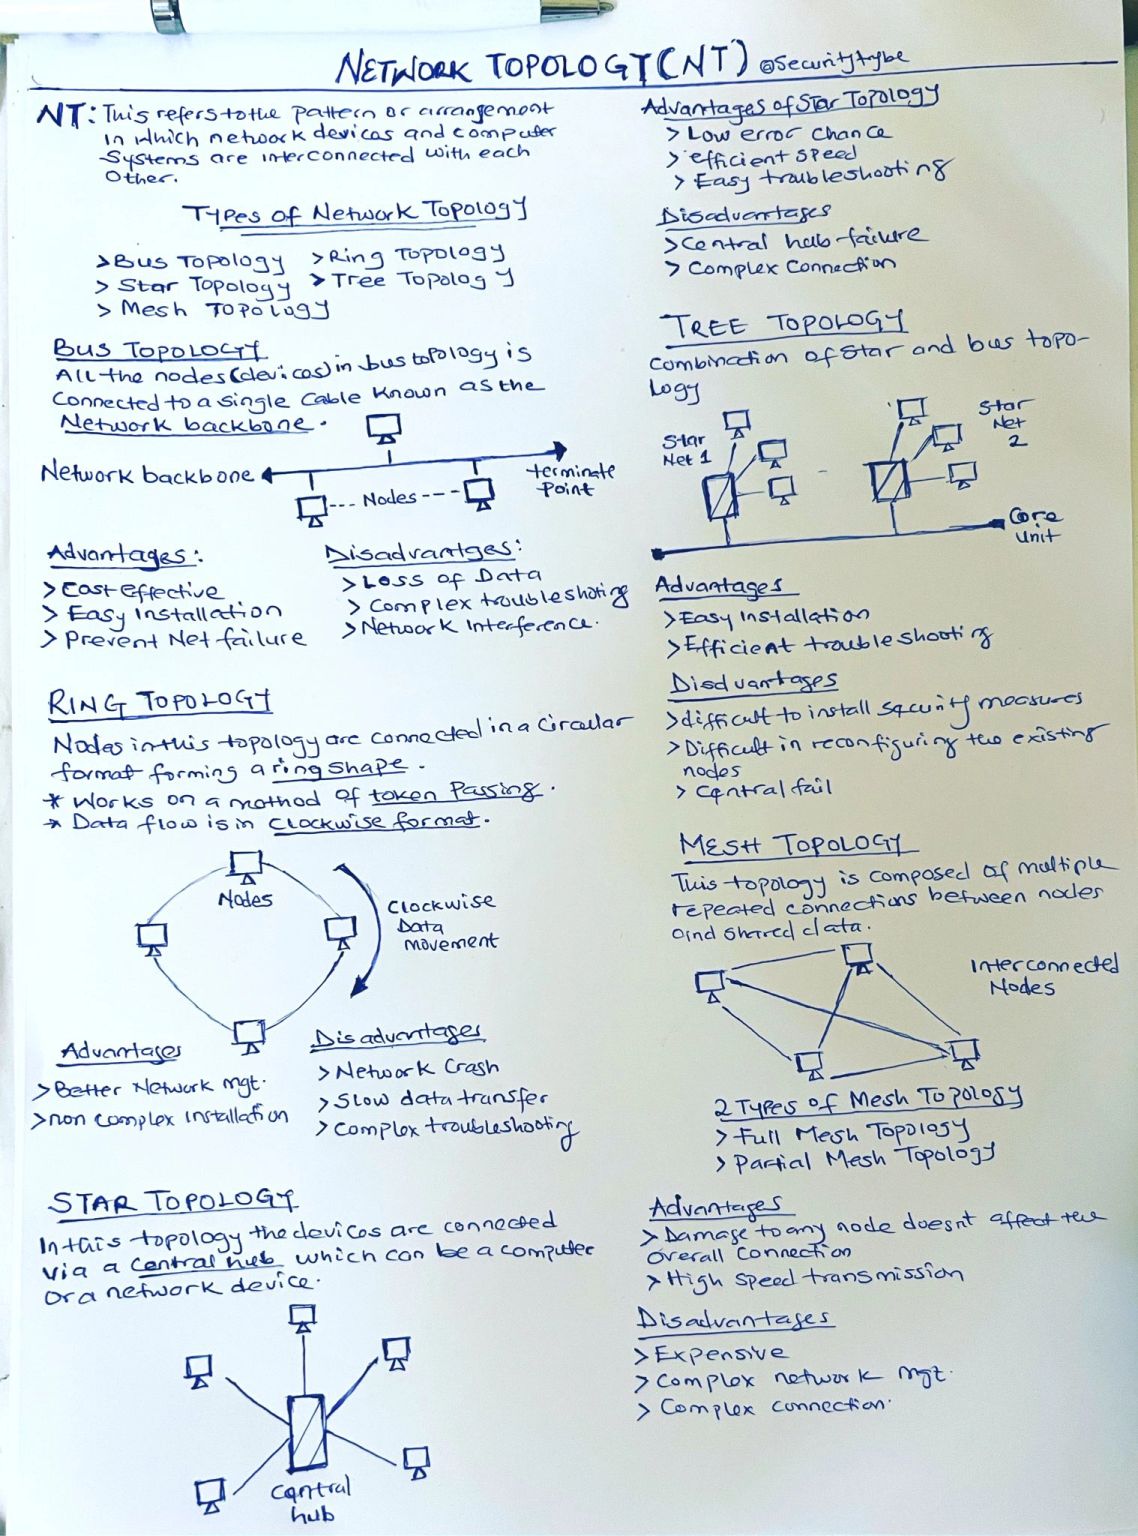 NETWORK TOPOLOGY (NT) @Securitytybe
NT: This refers to the pattern or arrangement
in which network devices and computer
systems are interconnected with each
other.
Types of Network Topology
> Bus Topology > Ring Topology
> Star Topology > Tree Topology
> Mesh Topology
BUS TOPOLOGY
All the nodes (devices) in bus topology is
connected to a single cable known as the
Network backbone.
Network backbone
terminate
Point
--- Nodes ---
Advantages:
> Cost effective
> Easy Installation
> Prevent Net failure
Disadvantges:
> Loss of Data
> Complex troubleshoting
> Network Interference.
RING TOPOLOGY
Nodes in this topology are connected in a Circular
format forming a ring shape.
* Works on a method of token Passing.
* Data flow is in Clockwise format.
Nodes
Clockwise
Data
movement
Advantages
> Better Network mgt.
> non complex installation
Disadvantages
> Network Crash
> Slow data transfer
> Complex troubleshooting
STAR TOPOLOGY
In this topology the devices are connected
via a central hub which can be a computer
or a network device.
Central
hub
Advantages of Star Topology
> Low error chance
> efficient speed
> Easy troubleshooting
Disadvantages
> Central hub failure
> Complex Connection
TREE TOPOLOGY
Combination of Star and bus topo-
logy
Star
Net 1
Star
Net
2
Core
Unit
Advantages
> Easy Installation
> Efficient troubleshooting
Disdvantages
> difficult to install security measures
> Difficult in reconfiguring the existing
nodes
> Central fail
MESH TOPOLOGY
This topology is composed of multiple
repeated connections between nodes
and shared data.
Interconnected
Nodes
2 Types of Mesh Topology
> Full Mesh Topology
> Partial Mesh Topology
Advantages
> Damage to any node doesnt affect the
overall Connection
> High Speed transmission
Disadvantages
> Expensive
> Complex network mgt.
> Complex connection.